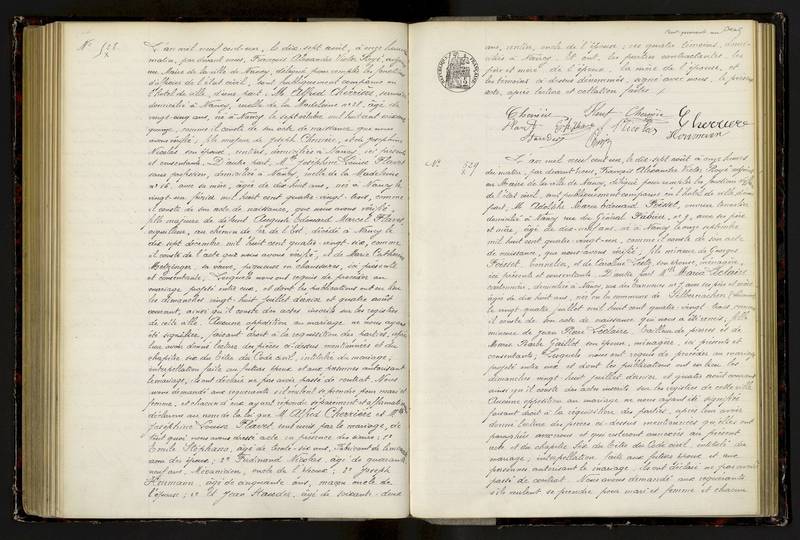 N° 528
L'an mil neuf cent un, le dix sept août, à onze heures
matin, par devant nous, François Alexandre Victor
en Mairie de la ville de Nancy, délégué pour remplir les fonctions
d'officier de l'état civil, sont publiquement comparus en
l'hôtel de ville, d'une part, M. Alfred Cherrière,
domicilié à Nancy, ruelle de la Madeleine n° 28, âgé de
vingt cinq ans, né à Nancy le sept octobre mil huit cent soixante
quinze, comme il conste de son acte de naissance que nous
avons vérifié, fils majeur de Joseph Cherrière, et de Joséphine
Nicolas son épouse, rentiers, domiciliés à Nancy, ici présents
et consentants. D'autre part, Mlle Joséphine Louise Flavet
sans profession, domiciliée à Nancy, ruelle de la Madeleine
n° 16, avec sa mère, âgée de dix huit ans, née à Nancy le
vingt un février mil huit cent quatre-vingt-trois, comme
il conste de son acte de naissance, que nous avons vérifié,
fille mineure de défunt Auguste Edouard Marcel Flavet
aiguilleur, au chemin de fer de l'Est, décédé à Nancy le
dix sept décembre mil huit cent quatre-vingt-six, comme
il conste de l'acte que nous avons vérifié, et de Marie Catherine
Metzinger, sa veuve, piqueuse en chaussures, ici présente
et consentante. Lesquels nous ont requis de procéder au
mariage projeté entre eux, et dont les publications ont eu lieu
les dimanches vingt-huit juillet dernier et quatre août
courant, ainsi qu'il conste des actes inscrits sur les registres
de cette ville. Aucune opposition au mariage ne nous ayant
été signifiée, faisant droit à la réquisition des parties, après
leur avoir donné lecture des pièces ci-dessus mentionnées et du
chapitre six du titre du Code civil, intitulé du mariage;
interpellation faite aux futurs époux et aux personnes autorisant
le mariage, ils ont déclaré ne pas avoir passé de contrat. Nous
avons demandé aux requérants s'ils veulent se prendre pour mari et
femme, et chacun d'eux ayant répondu séparément et affirmativement
déclarons au nom de la loi que M. Alfred Cherrière et Mlle
Joséphine Louise Flavet, sont unis par le mariage, de
tout quoi nous avons dressé acte en présence des sieurs: 1°
Emile Stéphano, âgé de trente-six ans, fabricant de
ami des époux; 2° Ferdinand Nicolas, âgé de quarante
neuf ans, Mécanicien, oncle de l'époux; 3° Joseph
Hermann, âgé de cinquante ans, maçon oncle de
l'épouse; 4° et Jean Hander, âgé de soixante-deux
ans, rentier, oncle de l'épouse; ces quatre témoins, domiciliés
à Nancy. Et ont, les parties contractantes, les
père et mère de l'époux, la mère de l'épouse, et
les témoins ci dessus dénommés, signé avec nous, le présent
acte, après lecture et collation faites.
N° 529
L'an mil neuf cent un, le dix sept août à onze heures
du matin, par devant nous, François Alexandre Victor
en Mairie de la ville de Nancy, délégué pour remplir les fonctions
de l'état civil, sont publiquement comparus en l'hôtel de ville, d'une
part, M. Adolphe Marie Edouard Poisset,
domicilié à Nancy rue du Général Fabvier, n° 9, avec ses père
et mère, âgé de dix-neuf ans, né à Nancy le neuf septembre
mil huit cent quatre-vingt-un, comme il conste de son acte
de naissance, que nous avons vérifié, fils mineur de Georges
Poisset, tonnelier, et de Caroline son épouse, ménagère,
ici présents et consentants. D'autre part Mlle Maria Leclaire
couturière, domiciliée à Nancy, rue des n° 7, avec ses père et mère
âgée de dix huit ans, née en la commune de
le vingt quatre juillet mil huit cent quatre-vingt trois, comme
il conste de son acte de naissance qui nous a été remis, fille
mineure de Jean Pierre Leclaire, tailleur de pierres et de
Marie Barbe Gaillot son épouse, ménagère, ici présents et
consentants; Lesquels nous ont requis de procéder au mariage
projeté entre eux et dont les publications ont eu lieu les
dimanches vingt huit juillet dernier et quatre août courant
ainsi qu'il conste des actes inscrits sur les registres de cette ville.
Aucune opposition au mariage ne nous ayant été signifiée
faisant droit à la réquisition des parties, après leur avoir
donné lecture des pièces ci-dessus mentionnées qu'elles ont
paraphées avec nous et qui resteront annexées au présent
acte et du chapitre six du titre du Code civil, intitulé du
mariage; interpellation faite aux futurs époux et aux
personnes autorisant le mariage, ils ont déclaré ne pas avoir
passé de contrat. Nous avons demandé aux requérants
s'ils veulent se prendre pour mari et femme et chacun